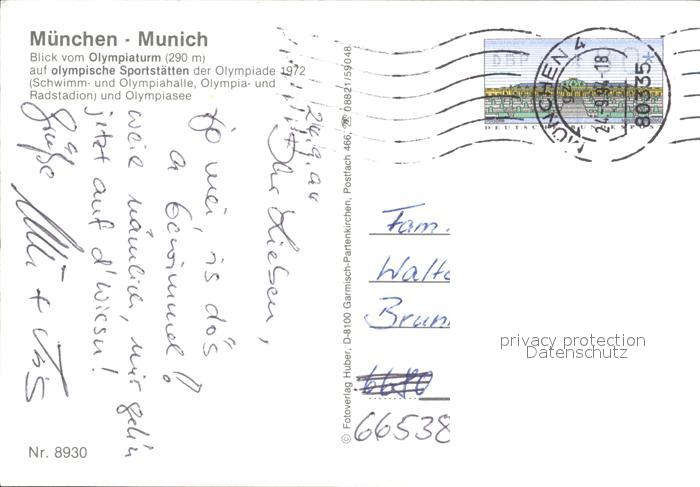 München · Munich
Blick vom Olympiaturm (290 m)
auf olympische Sportstätten der Olympiade 1972
(Schwimm- und Olympiahalle, Olympia- und
Radstadion) und Olympiasee
24.9.94
Ihr Lieben,
jo mei, is dös
a Gewimmel!
weil nämlich, mir geh'n
jetzt auf d'Wiesn!
Grüße
Nr. 8930
© Fotoverlag Huber, D-8100 Garmisch-Partenkirchen, Postfach 466, ☏ 08821/59048
DBP
DEUTSCHE BUNDESPOST
MÜNCHEN 4
24.-9.94-18
80335
Fam.
Walt
Brun
6680
66538
privacy protection
Datenschutz